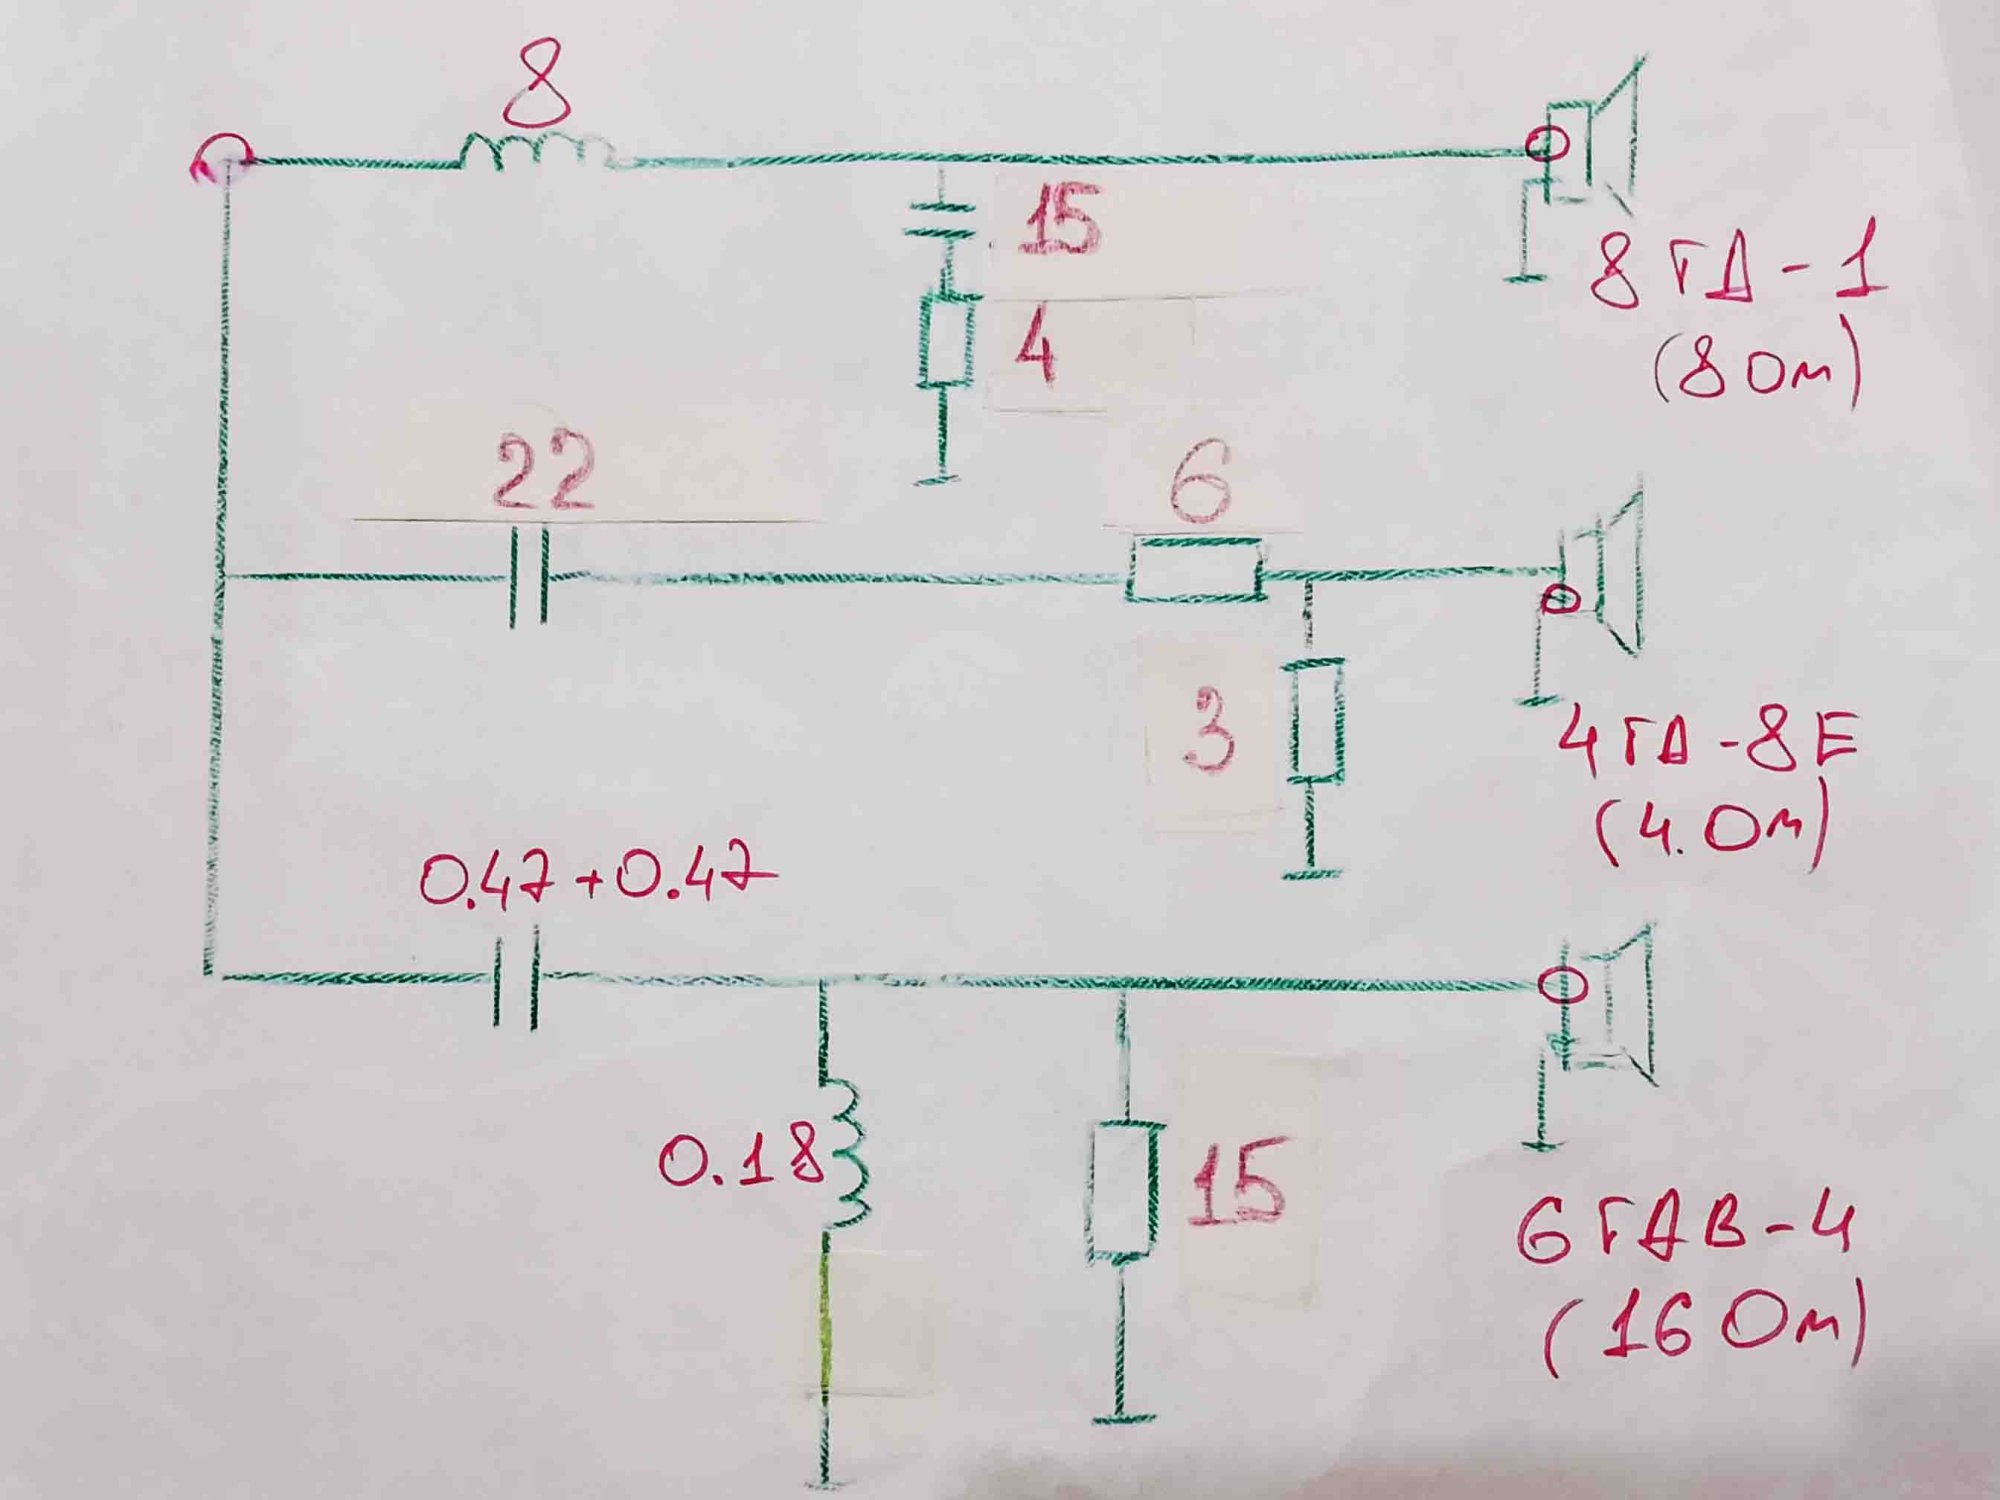 8
15
8 ГД-1
4
(8 Ом)
22
6
3
4 ГД-8Е
(4. Ом)
0.47+0.47
0.18
15
6 ГДВ-4
(16 Ом)